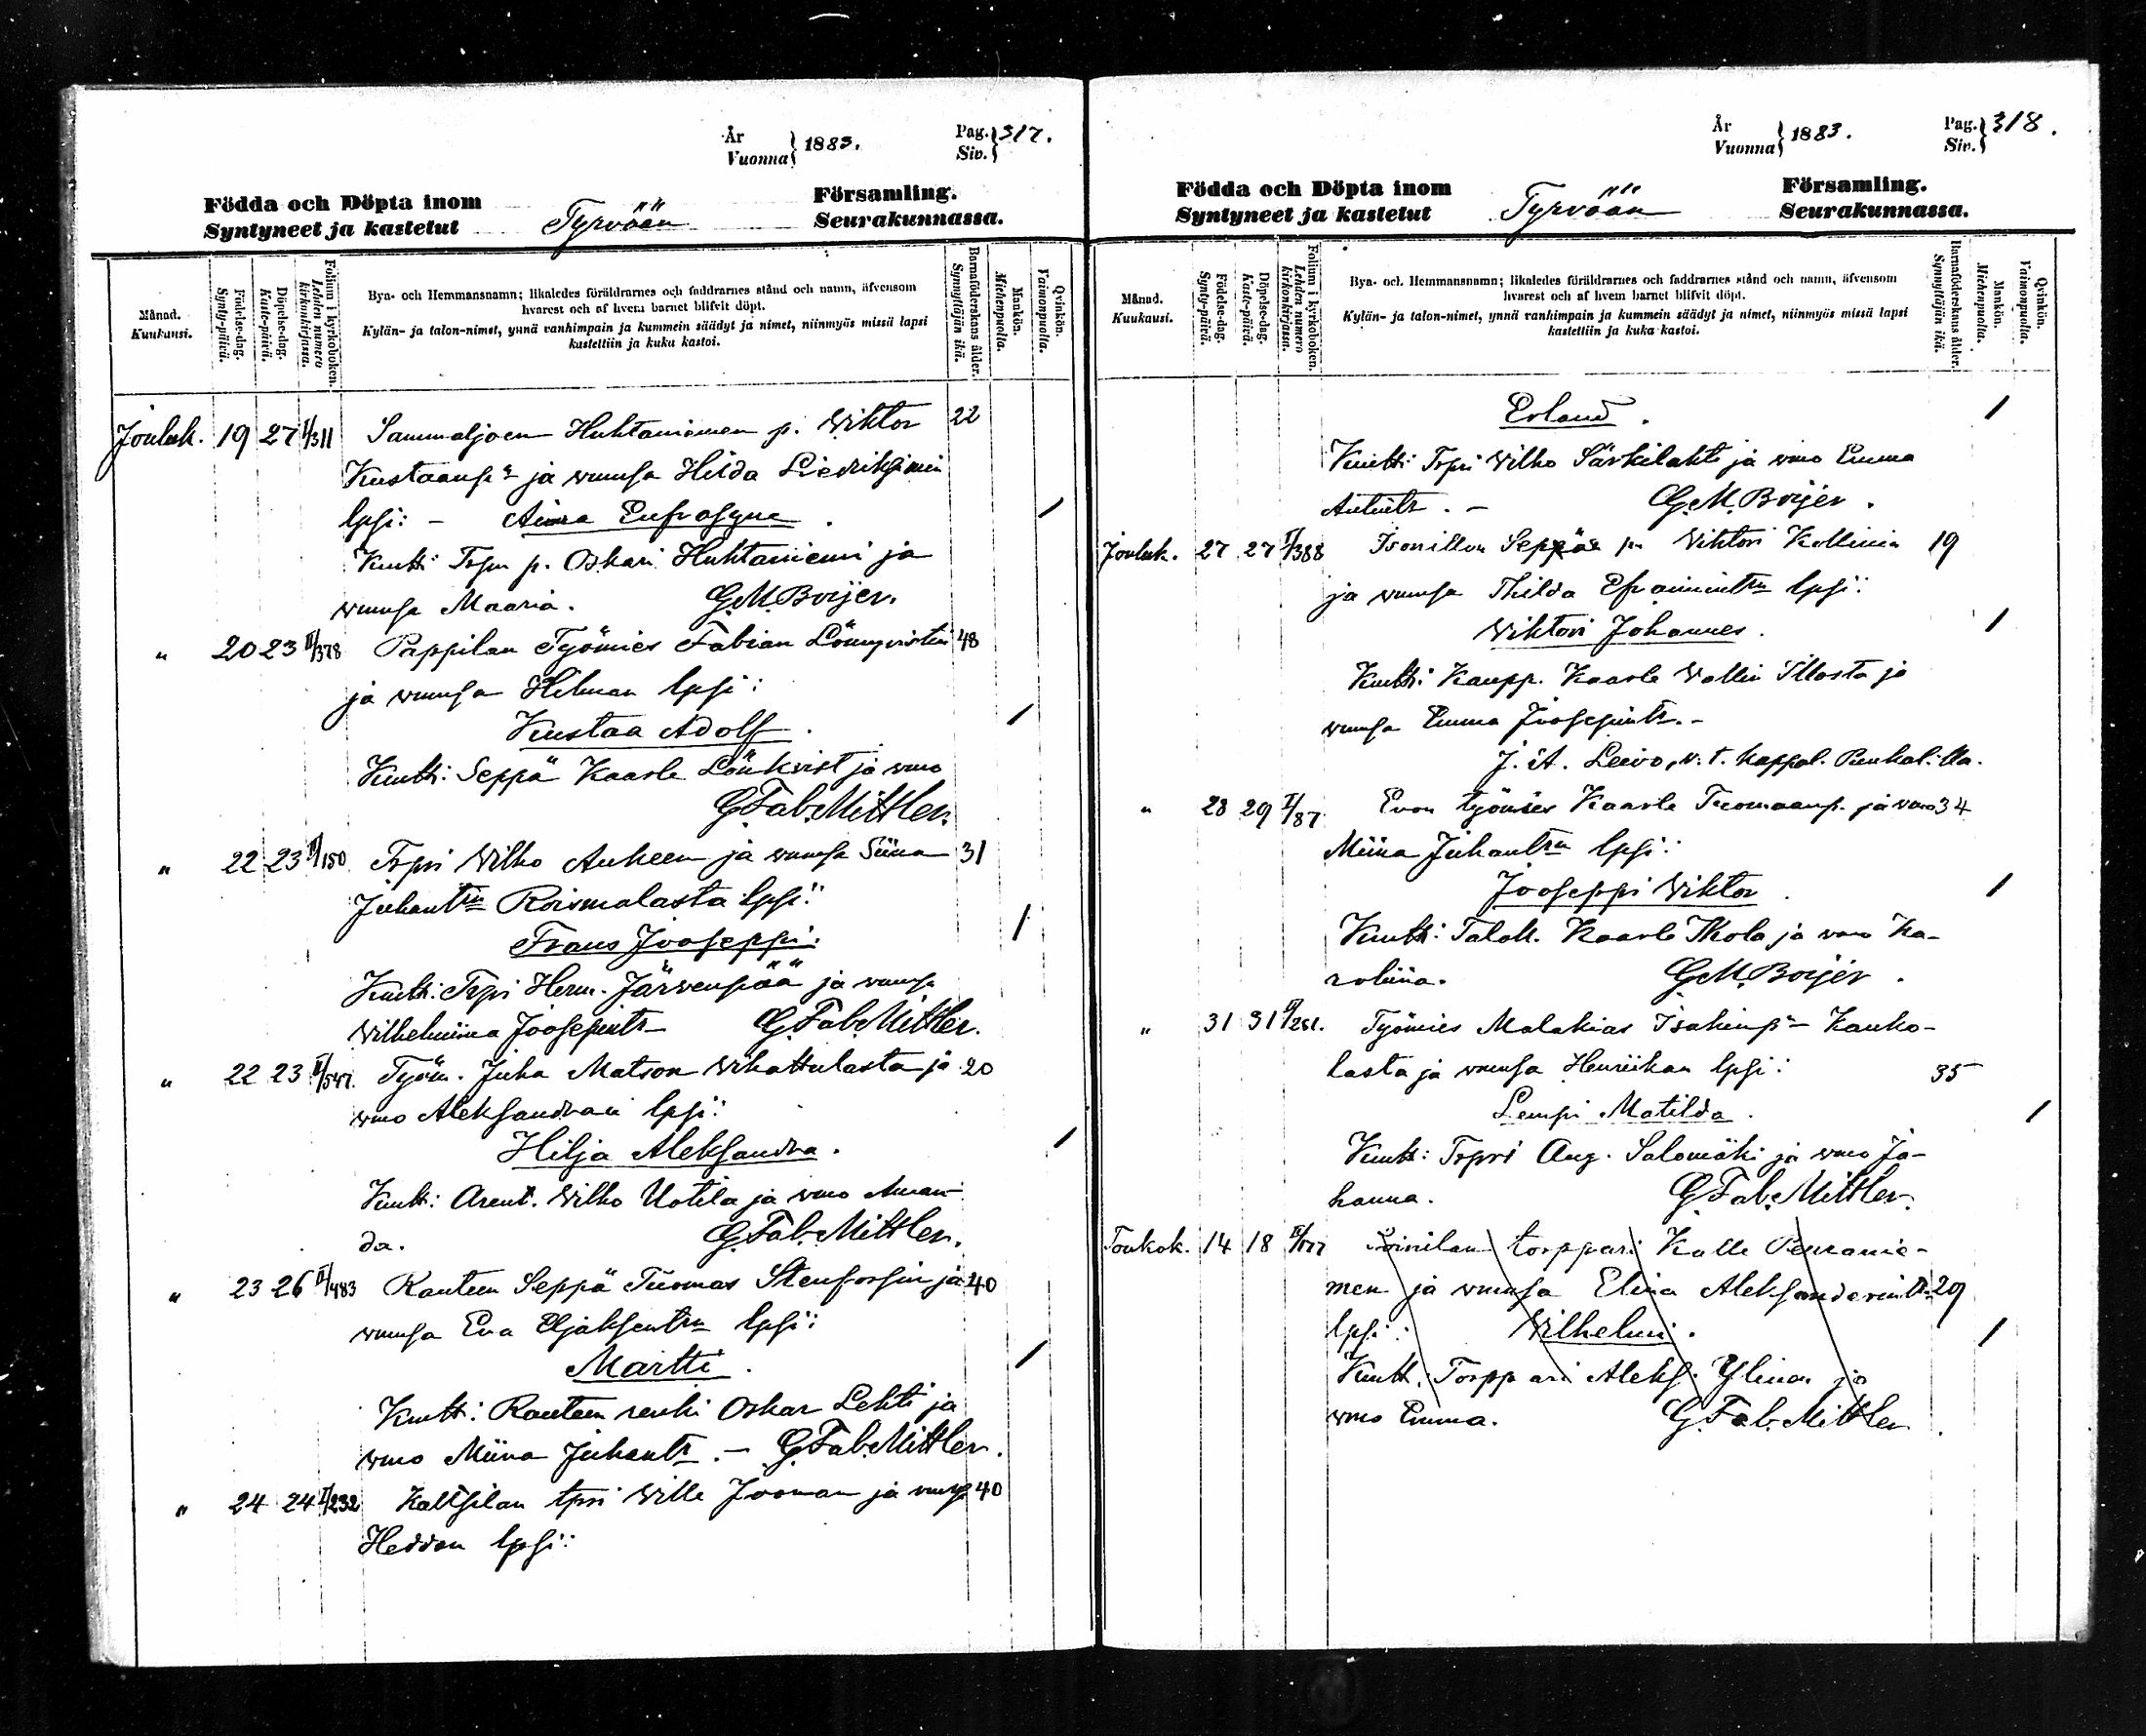 År
Vuonna } 1883.
Pag.
Siv. } 317.
Födda och Döpta inom
Syntyneet ja kastetut
Tyrvään
Församling.
Seurakunnassa.
Månad.
Kuukausi.
Födelse-dag.
Synty-päivä.
Döpelse-dag.
Kaste-päivä.
Folium i kyrkoboken.
Lehden numero kirkonkirjassa.
Bya- och Hemmansnamn; likaledes föräldrarnes och faddrarnes stånd och namn, äfvensom
hvarest och af hvem barnet blifvit döpt.
Kylän- ja talon-nimet, ynnä vanhimpain ja kummein säädyt ja nimet, niinmyös missä lapsi
kastettiin ja kuka kastoi.
Barnaföderskans ålder.
Synnyttäjän ikä.
Mankön.
Miehenpuolia.
Qvinkön.
Vaimonpuolia.
Jouluk. 19 27 I/311 Sammaljoen Huhtaniemen p. Wiktor 22
Kustaanp. ja wmnsa Hilda
lpsi: - Aina Eufrosyne. 1
Kmtt: Trpn p. Oskari Huhtaniemi ja
wmnsa Maaria. G.M. Boijer.
" 20 23 II/378 Pappilan Työmies Fabian Lönnqvistin 48
ja wmnsa Hilman lpsi:
Kustaa Adolf. 1
Kmtt: Seppä Kaarle Lönkvist ja wmo
G.Fab.Mittler.
" 22 23 II/150 Trpri Wilho Ankeen ja wmnsa Siina 31
Juhantrn Roismalasta lpsi:
Frans Jooseppi. 1
Kmtt: Trpri Herm. Järwenpää ja wmnsa
Wilhelmiina Joosepintr G.Fab.Mittler.
" 22 23 II/547. Työm. Juha Matson Wihattulasta ja 20
wmo Aleksandran lpsi:
Hilja Aleksandra. 1
Kmtt: Arent. Wilho Uotila ja wmo Aman-
da. G.Fab.Mittler.
" 23 26 II/483 Rauteen Seppä Tuomas Stenforsin ja 40
wmnsa Eva Eljaksentrn lpsi:
Martti. 1
Kmtt: Rauteen renki Oskar Lehti ja
wmo Miina Juhantr. - G.Fab.Mittler.
" 24 24 I/232 Kaltsilan tpri Wille Jooman ja wmnsa 40
Heddan lpsi:
År
Vuonna } 1883.
Pag.
Siv. } 318.
Födda och Döpta inom
Syntyneet ja kastetut
Tyrvään
Församling.
Seurakunnassa.
Månad.
Kuukausi.
Födelse-dag.
Synty-päivä.
Döpelse-dag.
Kaste-päivä.
Folium i kyrkoboken.
Lehden numero kirkonkirjassa.
Bya- och Hemmansnamn; likaledes föräldrarnes och faddrarnes stånd och namn, äfvensom
hvarest och af hvem barnet blifvit döpt.
Kylän- ja talon-nimet, ynnä vanhimpain ja kummein säädyt ja nimet, niinmyös missä lapsi
kastettiin ja kuka kastoi.
Barnaföderskans ålder.
Synnyttäjän ikä.
Mankön.
Miehenpuolia.
Qvinkön.
Vaimonpuolia.
Erland. 1
Kmtt: Trpri Wilho Särkilahti ja wmo Emma
Antintr. - G.M. Boijer.
Jouluk. 27 27 I/388 Isonillon Seppä p. Wihtori Kollinin 19
ja wmnsa Thilda Efraimintrn lpsi:
Wiktori Johannes. 1
Kmtt: Kaupp. Kaarle Wallin Illosta ja
wmnsa Emma Joosepintr. -
J. A. Leivo, v. t. Kappal. Punkal:lla.
" 28 29 I/87 Evon työmies Kaarle Tuomaanp. ja wmo 34
Miina Juhantrn lpsi:
Jooseppi Wiktor. 1
Kmtt: Talok. Kaarle Ikola ja wmo Ka-
roliina. G.M. Boijer.
" 31 31 II/281. Työmies Malakias Isakinp. Kauko-
lasta ja wmnsa Henriikan lpsi: 35
Lempi Matilda. 1
Kmtt: Trpri Aug. Salomäki ja wmo Jo-
hanna. G.Fab.Mittler.
Toukok. 14 18 II/177 Soinilan torppari Kalle Penranie-
men ja wmnsa Elina Aleksanderintr. 29
lpsi: Wilhelmi. 1
Kmtt. Torppari Aleks. Ylinen ja
wmo Emma. G.Fab.Mittler.